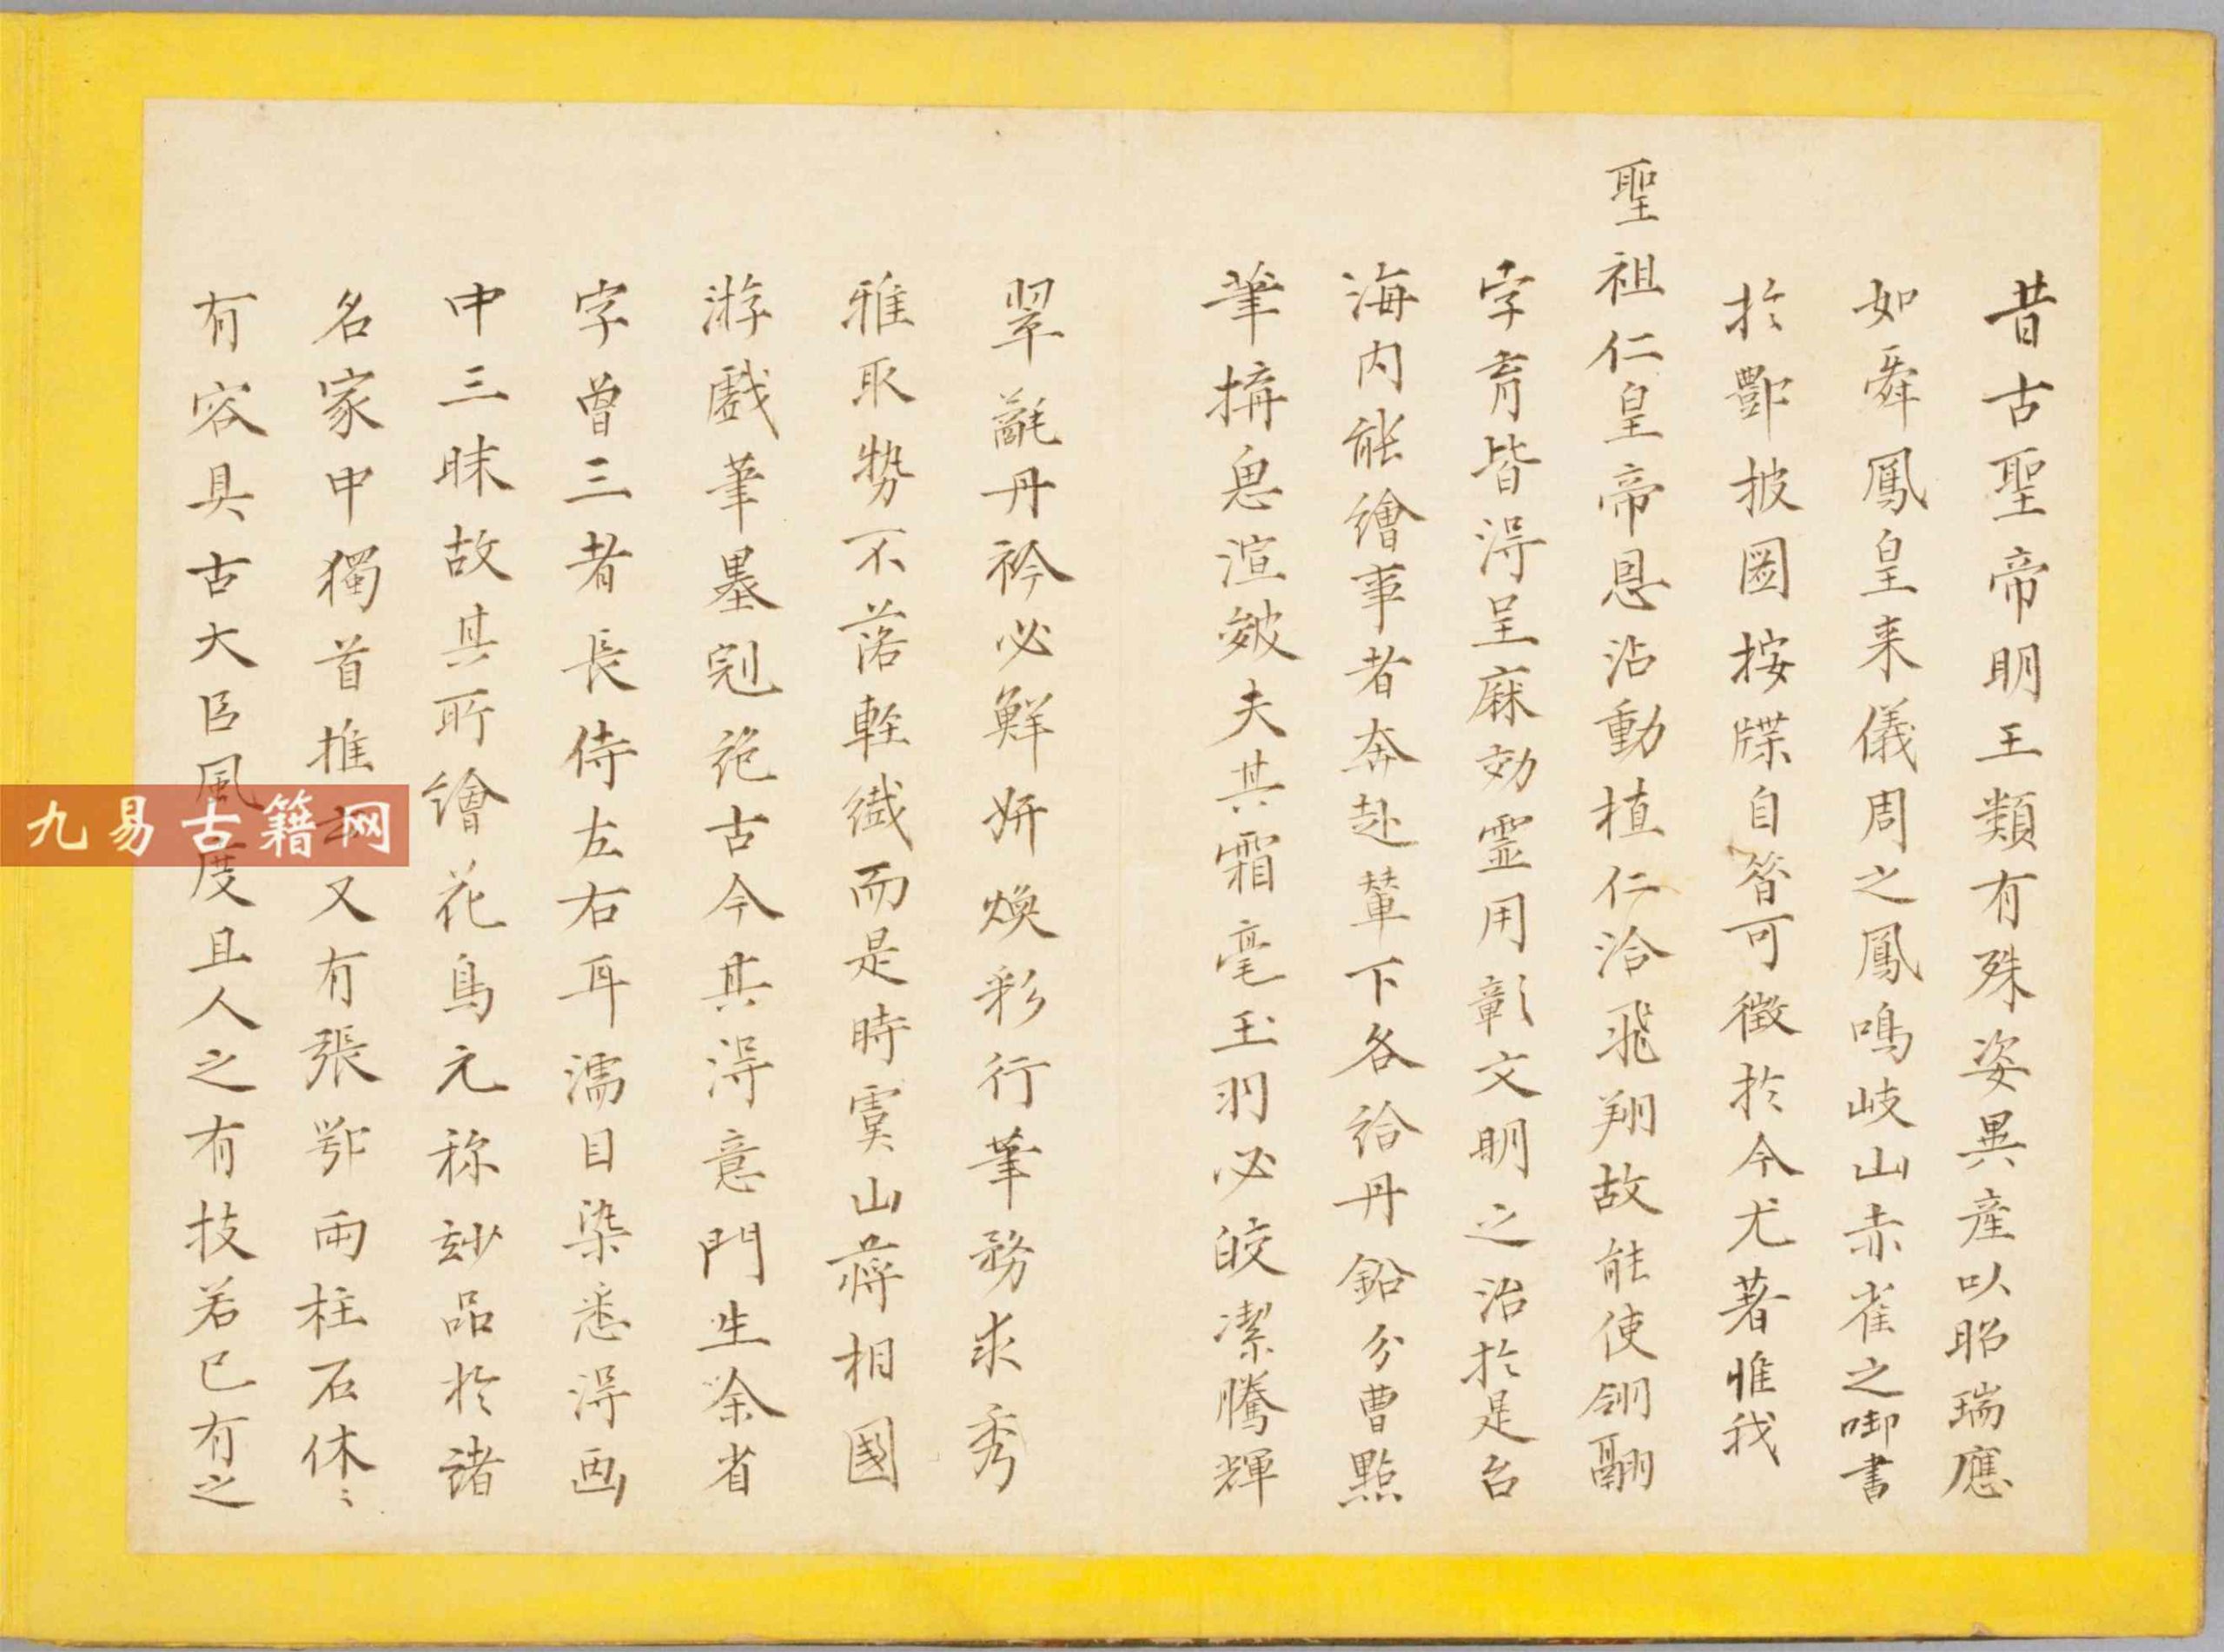 昔古聖帝明王類有殊姿異産以昭瑞應
如舜鳳皇来儀周之鳳鳴岐山赤雀之啣書
於酆披圖按牒自昝可徵於今尤著惟我
聖祖仁皇帝恩沾動植仁洽飛翔故能使翎翮
字育皆淂呈庥効霊用彰文明之治於是召
海内能繪事者奔赴輦下各袷丹鉛分曹點
筆搆思渲皴夫其霜毫玉羽必皎潔騰輝
翠氄丹衿必鮮妍煥彩行筆務求秀
雅取勢不落輕纎而是時虞山蔣相國
游戲筆墨剏范古今其淂意門生余省
字曾三者長侍左右耳濡目染悉淂画
中三昧故其所繪花鳥元称玅品於諸
名家中獨首推 又有張鄂両柱石休〻
有容具古大臣風度且人之有技若已有之
九易古籍网